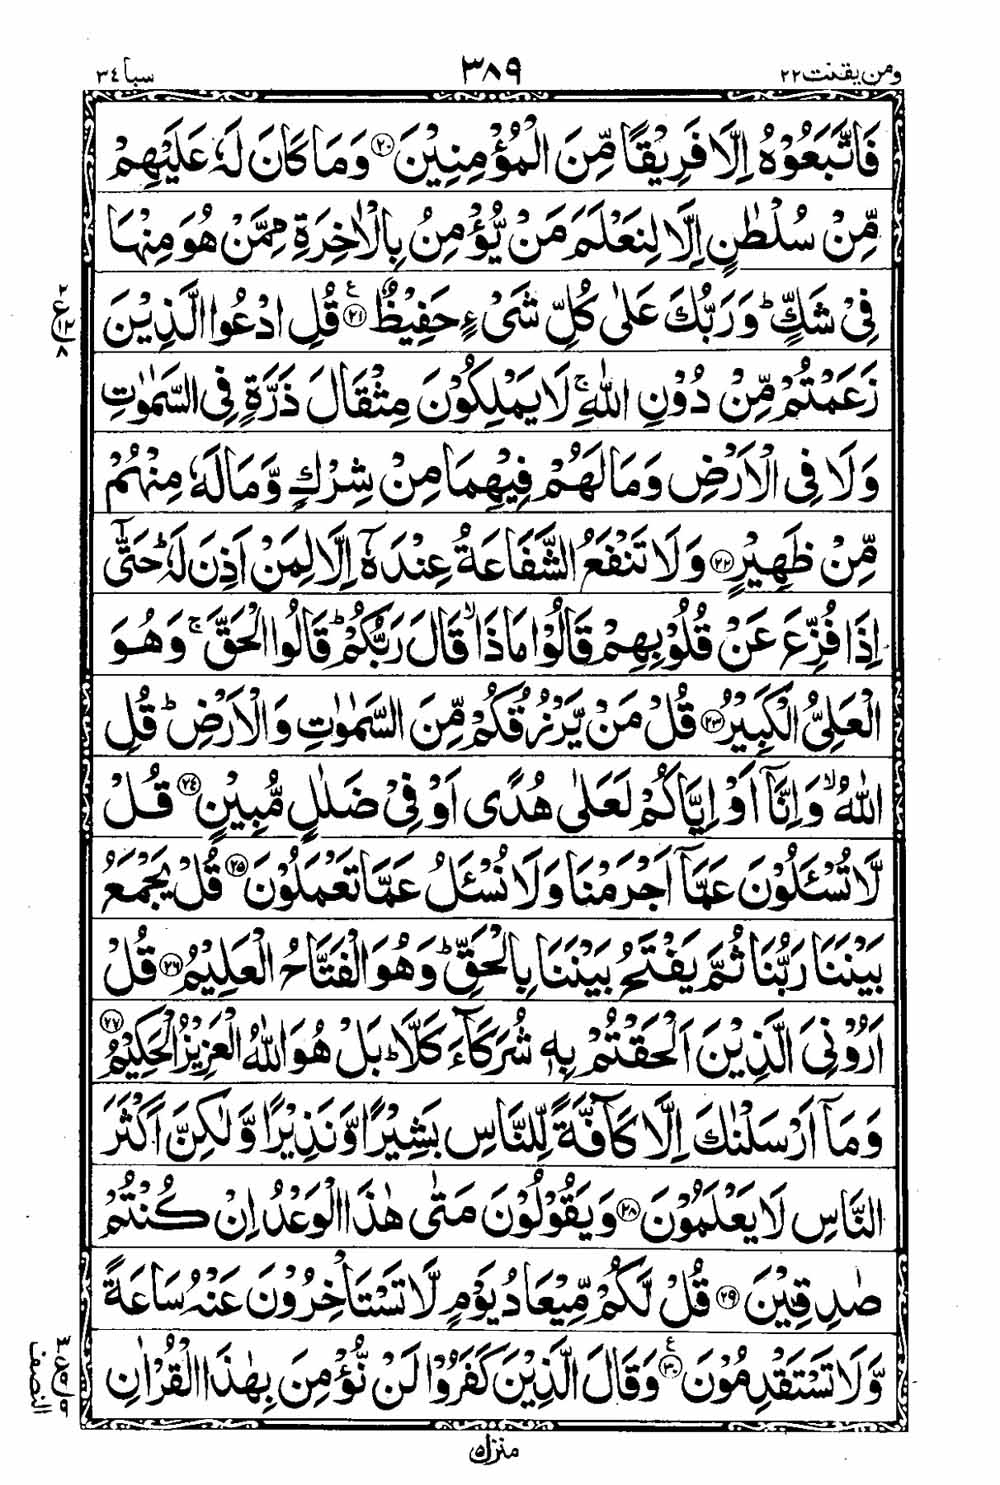 ومن يقنت ٢٢ ٣٨٩ سبا ٣٤
فَاتَّبَعُوْهُ اِلَّا فَرِيْقًا مِّنَ الْمُؤْمِنِيْنَ ۝٢٠ وَمَا كَانَ لَهٗ عَلَيْهِمْ
مِّنْ سُلْطٰنٍ اِلَّا لِنَعْلَمَ مَنْ يُّؤْمِنُ بِالْاٰخِرَةِ مِمَّنْ هُوَ مِنْهَا
فِيْ شَكٍّ ؕ وَرَبُّكَ عَلٰى كُلِّ شَيْءٍ حَفِيْظٌ ۝٢١ ع قُلِ ادْعُوا الَّذِيْنَ
زَعَمْتُمْ مِّنْ دُوْنِ اللّٰهِ ۚ لَا يَمْلِكُوْنَ مِثْقَالَ ذَرَّةٍ فِي السَّمٰوٰتِ
وَلَا فِي الْاَرْضِ وَمَا لَهُمْ فِيْهِمَا مِنْ شِرْكٍ وَّمَا لَهٗ مِنْهُمْ
مِّنْ ظَهِيْرٍ ۝٢٢ وَلَا تَنْفَعُ الشَّفَاعَةُ عِنْدَهٗٓ اِلَّا لِمَنْ اَذِنَ لَهٗ ؕ حَتّٰٓى
اِذَا فُزِّعَ عَنْ قُلُوْبِهِمْ قَالُوْا مَاذَا ۙ قَالَ رَبُّكُمْ ؕ قَالُوا الْحَقَّ ۚ وَهُوَ
الْعَلِيُّ الْكَبِيْرُ ۝٢٣ قُلْ مَنْ يَّرْزُقُكُمْ مِّنَ السَّمٰوٰتِ وَالْاَرْضِ ؕ قُلِ
اللّٰهُ ۙ وَاِنَّآ اَوْ اِيَّاكُمْ لَعَلٰى هُدًى اَوْ فِيْ ضَلٰلٍ مُّبِيْنٍ ۝٢٤ قُلْ
لَّا تُسْـَٔلُوْنَ عَمَّآ اَجْرَمْنَا وَلَا نُسْـَٔلُ عَمَّا تَعْمَلُوْنَ ۝٢٥ قُلْ يَجْمَعُ
بَيْنَنَا رَبُّنَا ثُمَّ يَفْتَحُ بَيْنَنَا بِالْحَقِّ ؕ وَهُوَ الْفَتَّاحُ الْعَلِيْمُ ۝٢٦ قُلْ
اَرُوْنِيَ الَّذِيْنَ اَلْحَقْتُمْ بِهٖ شُرَكَآءَ كَلَّا ؕ بَلْ هُوَ اللّٰهُ الْعَزِيْزُ الْحَكِيْمُ ۝٢٧
وَمَآ اَرْسَلْنٰكَ اِلَّا كَآفَّةً لِّلنَّاسِ بَشِيْرًا وَّنَذِيْرًا وَّلٰكِنَّ اَكْثَرَ
النَّاسِ لَا يَعْلَمُوْنَ ۝٢٨ وَيَقُوْلُوْنَ مَتٰى هٰذَا الْوَعْدُ اِنْ كُنْتُمْ
صٰدِقِيْنَ ۝٢٩ قُلْ لَّكُمْ مِّيْعَادُ يَوْمٍ لَّا تَسْتَاْخِرُوْنَ عَنْهُ سَاعَةً
وَّلَا تَسْتَقْدِمُوْنَ ۝٣٠ ع وَقَالَ الَّذِيْنَ كَفَرُوْا لَنْ نُّؤْمِنَ بِهٰذَا الْقُرْاٰنِ
النصف
منزل ٥